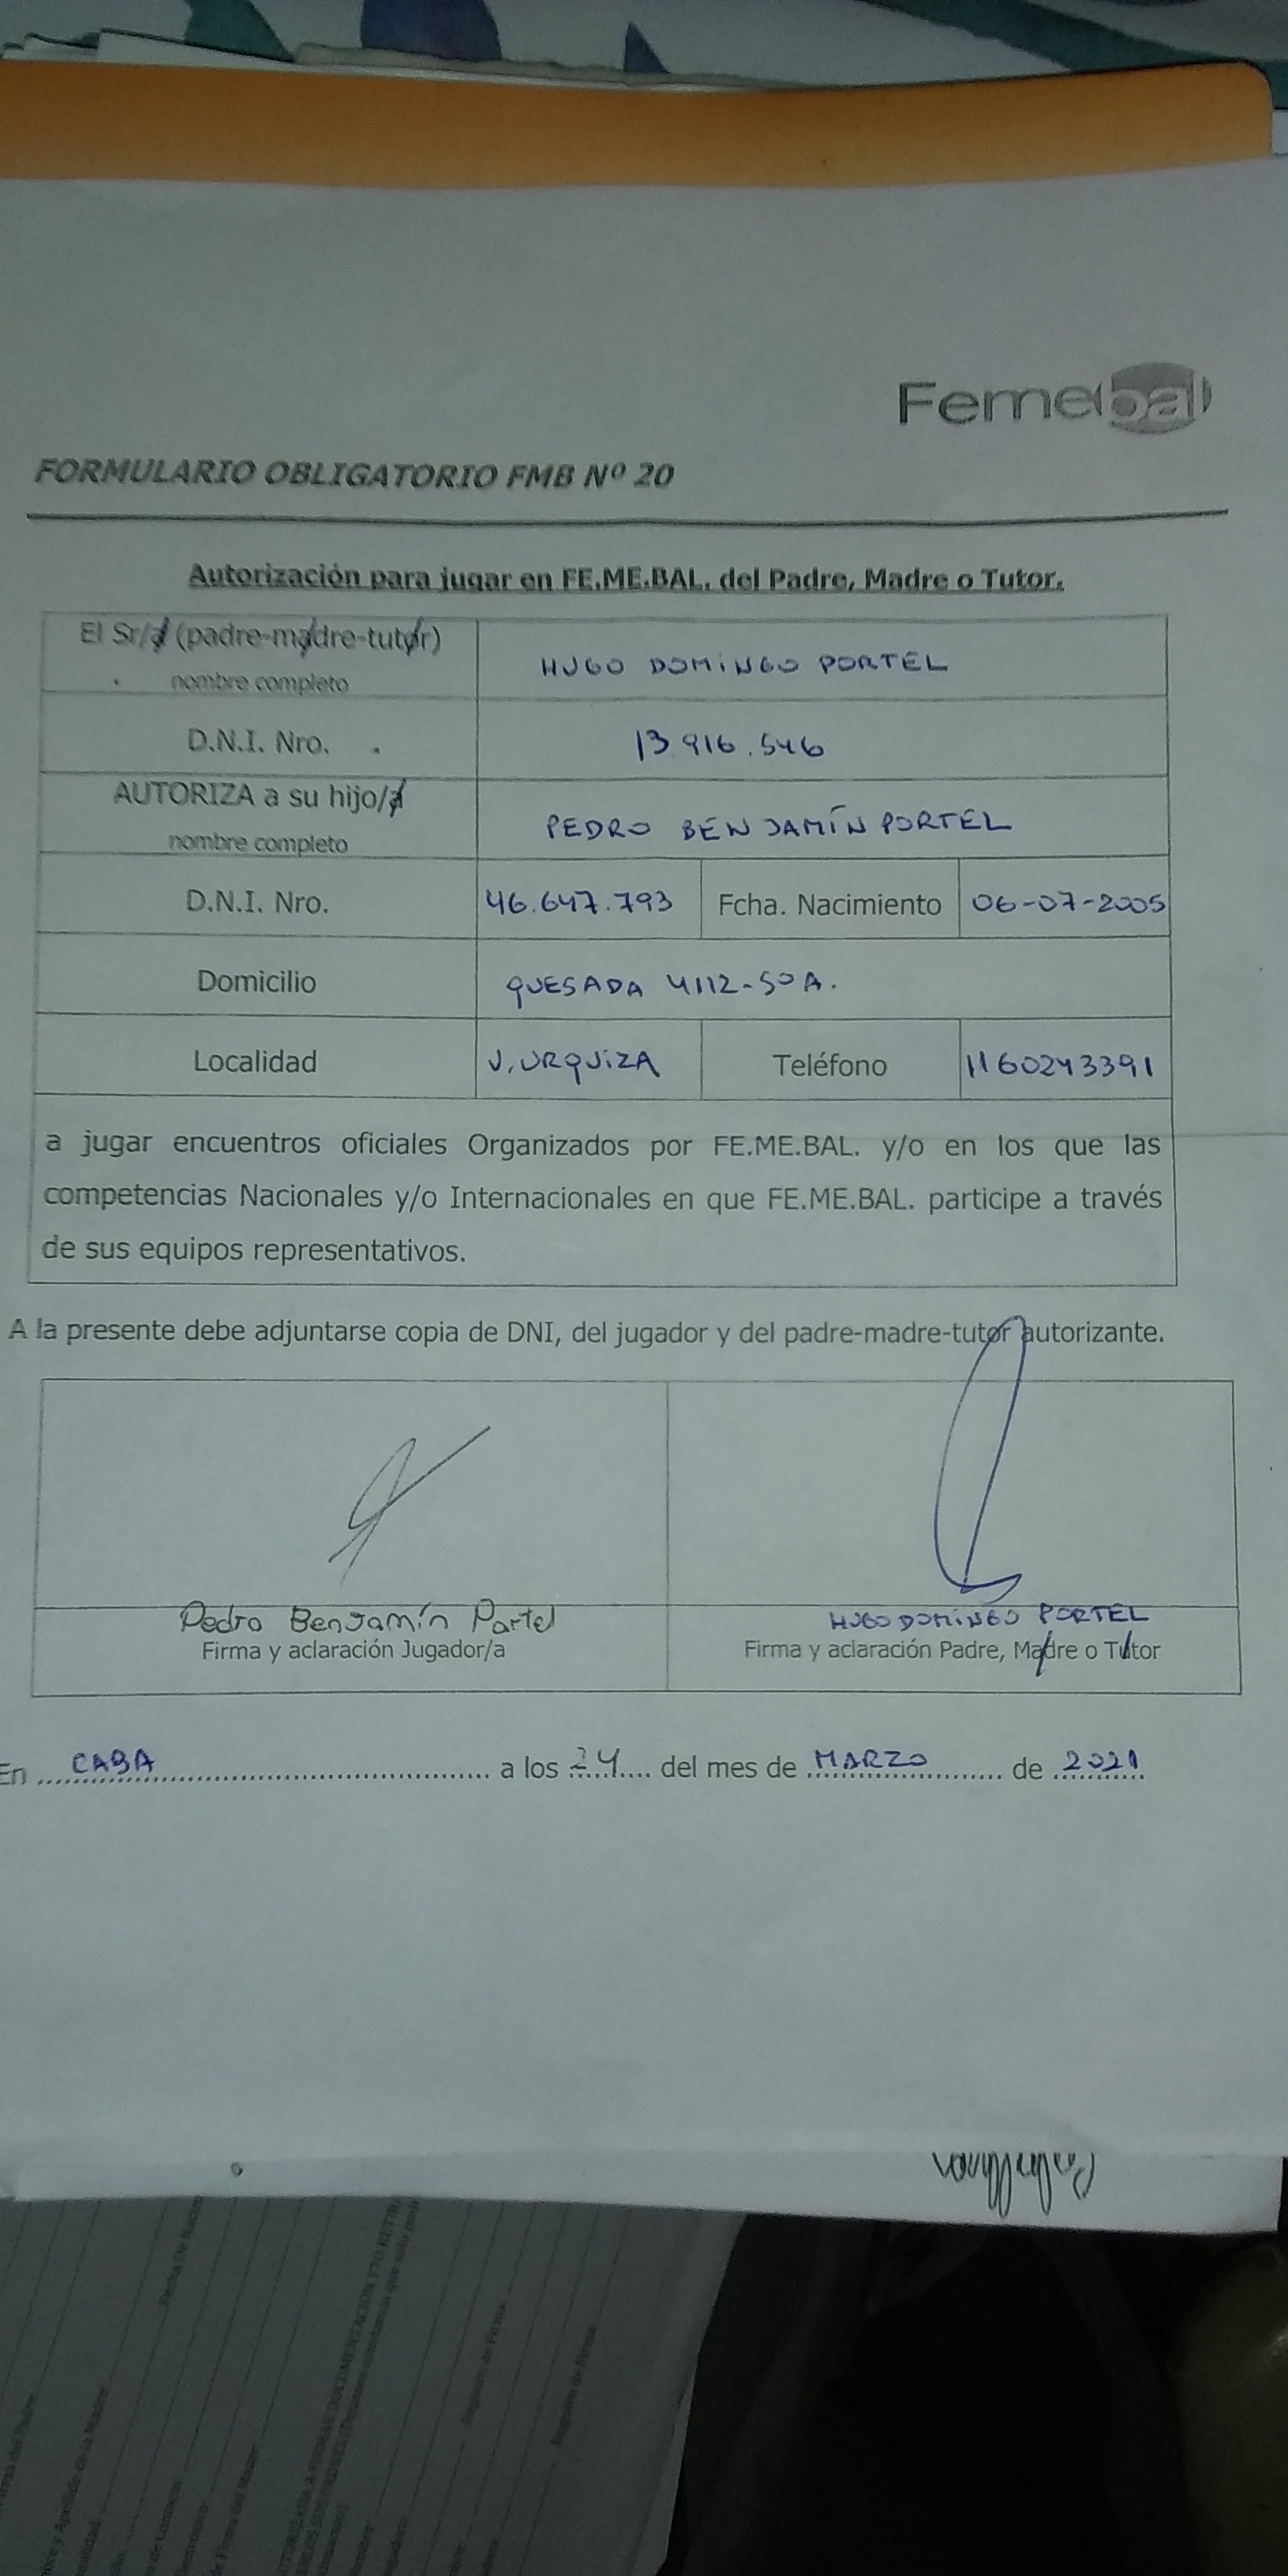 Femebal
FORMULARIO OBLIGATORIO FMB Nº 20
Autorización para jugar en FE.ME.BAL. del Padre, Madre o Tutor.
El Sr/a (padre-madre-tutor)
nombre completo
HUGO DOMINGO PORTEL
D.N.I. Nro.
13.916.546
AUTORIZA a su hijo/a
nombre completo
PEDRO BENJAMÍN PORTEL
D.N.I. Nro. 46.647.793 Fcha. Nacimiento 06-07-2005
Domicilio QUESADA 4112-50A.
Localidad V. URQUIZA Teléfono 1160243391
a jugar encuentros oficiales Organizados por FE.ME.BAL. y/o en los que las
competencias Nacionales y/o Internacionales en que FE.ME.BAL. participe a través
de sus equipos representativos.
A la presente debe adjuntarse copia de DNI, del jugador y del padre-madre-tutor autorizante.
Pedro Benjamín Portel
Firma y aclaración Jugador/a
HUGO DOMINGO PORTEL
Firma y aclaración Padre, Madre o Tutor
En CABA a los 24 del mes de MARZO de 2021